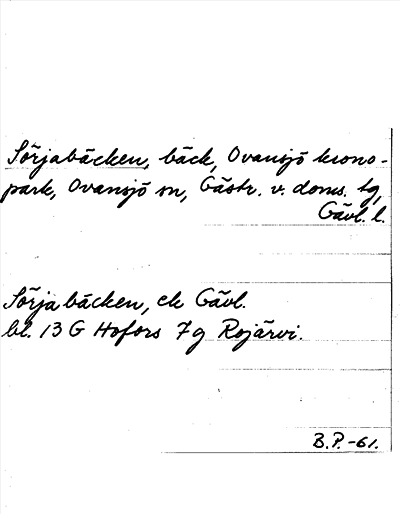 Sörjabäcken, bäck, Ovansjö krono-
park, Ovansjö sn, Gästr. v. doms. tg,
Gävl. l.
Sörjabäcken, ek Gävl.
bl. 13 G Hofors 7g Rojärvi.
B.P.-61.